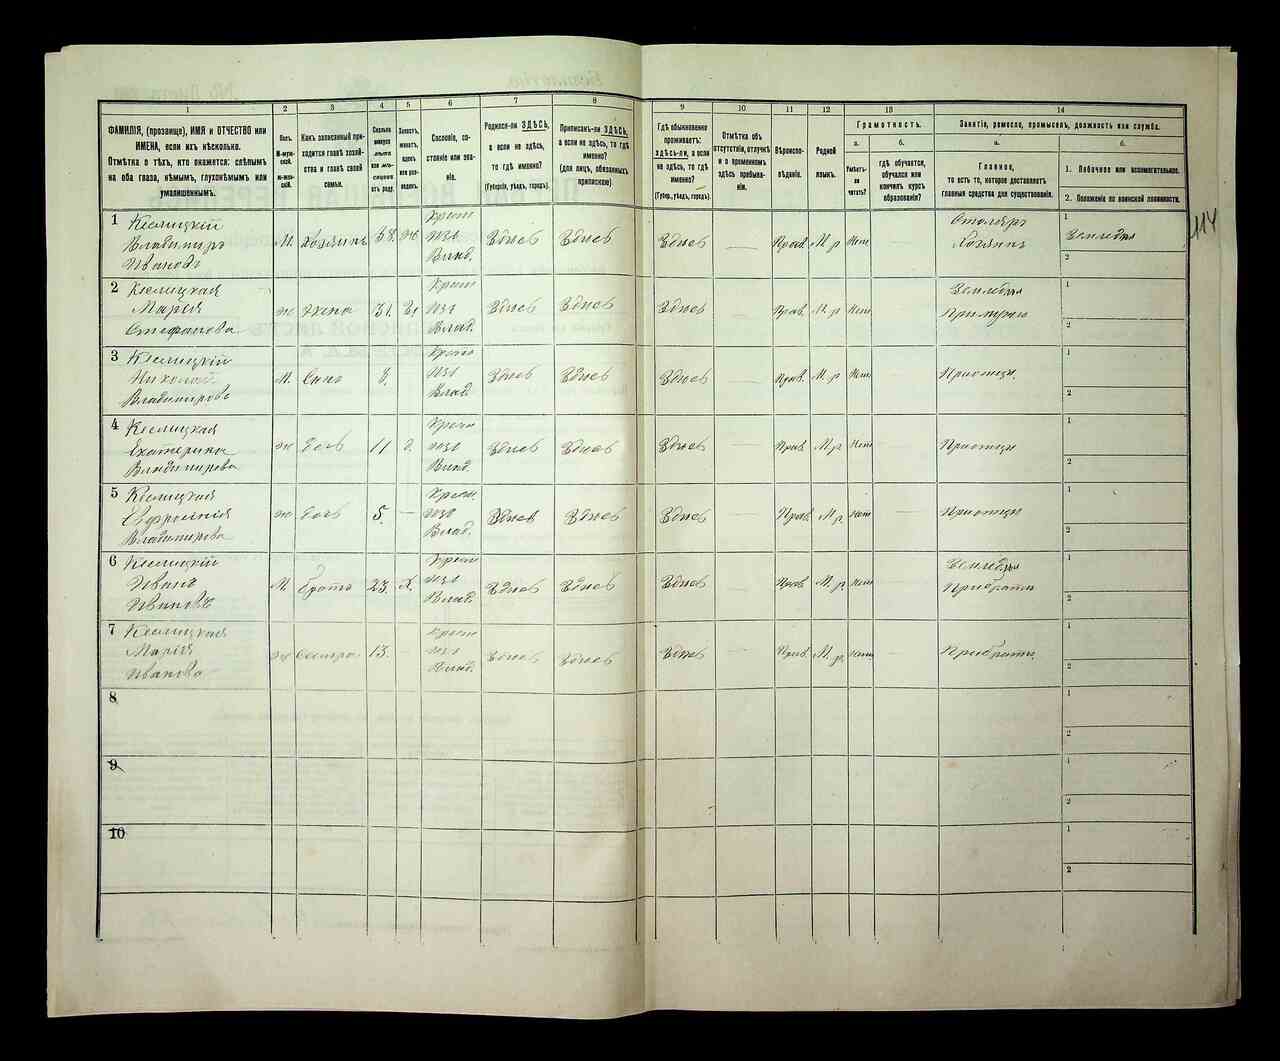 1 2 3 4 5 6 7 8 9 10 11 12 13 14
ФАМИЛІЯ, (прозвище), ИМЯ и ОТЧЕСТВО или
ИМЕНА, если ихъ нѣсколько.
Отмѣтка о тѣхъ, кто окажется: слѣпымъ
на оба глаза, нѣмымъ, глухонѣмымъ или
умалишеннымъ.
Полъ.
М-муж-
ской.
Ж-жен-
скій.
Какъ записанный при-
ходится главѣ хозяй-
ства и главѣ своей
семьи.
Сколько
минуло
лѣтъ
или мѣ-
сяцевъ
отъ роду.
Холостъ,
женатъ,
вдовъ
или раз-
веденъ.
Сословіе, со-
стояніе или зва-
ніе.
Родился-ли ЗДѢСЬ,
а если не здѣсь,
то гдѣ именно?
(Губернія, уѣздъ, городъ).
Приписанъ-ли ЗДѢСЬ,
а если не здѣсь, то гдѣ
именно?
(для лицъ, обязанныхъ
припискою)
Гдѣ обыкновенно
проживаетъ:
здѣсь-ли, а если
не здѣсь, то гдѣ
именно?
(Губер., уѣздъ, городъ).
Отмѣтка объ
отсутствіи, отлучкѣ
и о временномъ
здѣсь пребыва-
ніи.
Вѣроиспо-
вѣданіе.
Родной
языкъ.
Грамотность.
а. б.
Умѣетъ-
ли
читать?
гдѣ обучается,
обучался или
кончилъ курсъ
образованія?
Занятіе, ремесло, промыселъ, должность или служба.
а. б.
Главное,
то есть то, которое доставляетъ
главныя средства для существованія.
1. Побочное или вспомогательное.
2. Положеніе по воинской повинности.
114
1
Владимиръ
Ивановъ
М. Хозяинъ 38. Же
Крест
Влад.
Здѣсь Здѣсь Здѣсь — Прав. М. р Нет —
Столяръ
Хозяинъ
1 Земледѣл
2
2
Марія
Стефанова
ж Жена 31. За
Крест
Влад.
Здѣсь Здѣсь Здѣсь — Прав. М. р Нет —
Земледѣл
1
2
3
Николай
Владимирова
М. Сынъ 8. —
Крест
Влад.
Здѣсь Здѣсь Здѣсь — Прав. М. р Нет —
При отцѣ
1
2
4
Екатерина
Владимирова
ж Дочь 11
Крест
Влад.
Здѣсь Здѣсь Здѣсь — Прав. М. р Нет —
При отцѣ
1
2
5
Ефросинія
Владимирова
ж Дочь 5. —
Крест
Влад.
Здѣсь Здѣсь Здѣсь — Прав. М. р. нет —
При отцѣ
1
2
6
Иванъ
Ивановъ
М. Братъ 23. Х.
Крест
Влад.
Здѣсь Здѣсь Здѣсь — Прав. М. р Нет —
Земледѣл
При братѣ
1
2
7
Марія
Иванова
ж Сестра 13. —
Крест
Влад.
Здѣсь Здѣсь Здѣсь — Прав. М. р. нет —
При братѣ
1
2
8
1
2
9
1
2
10
1
2